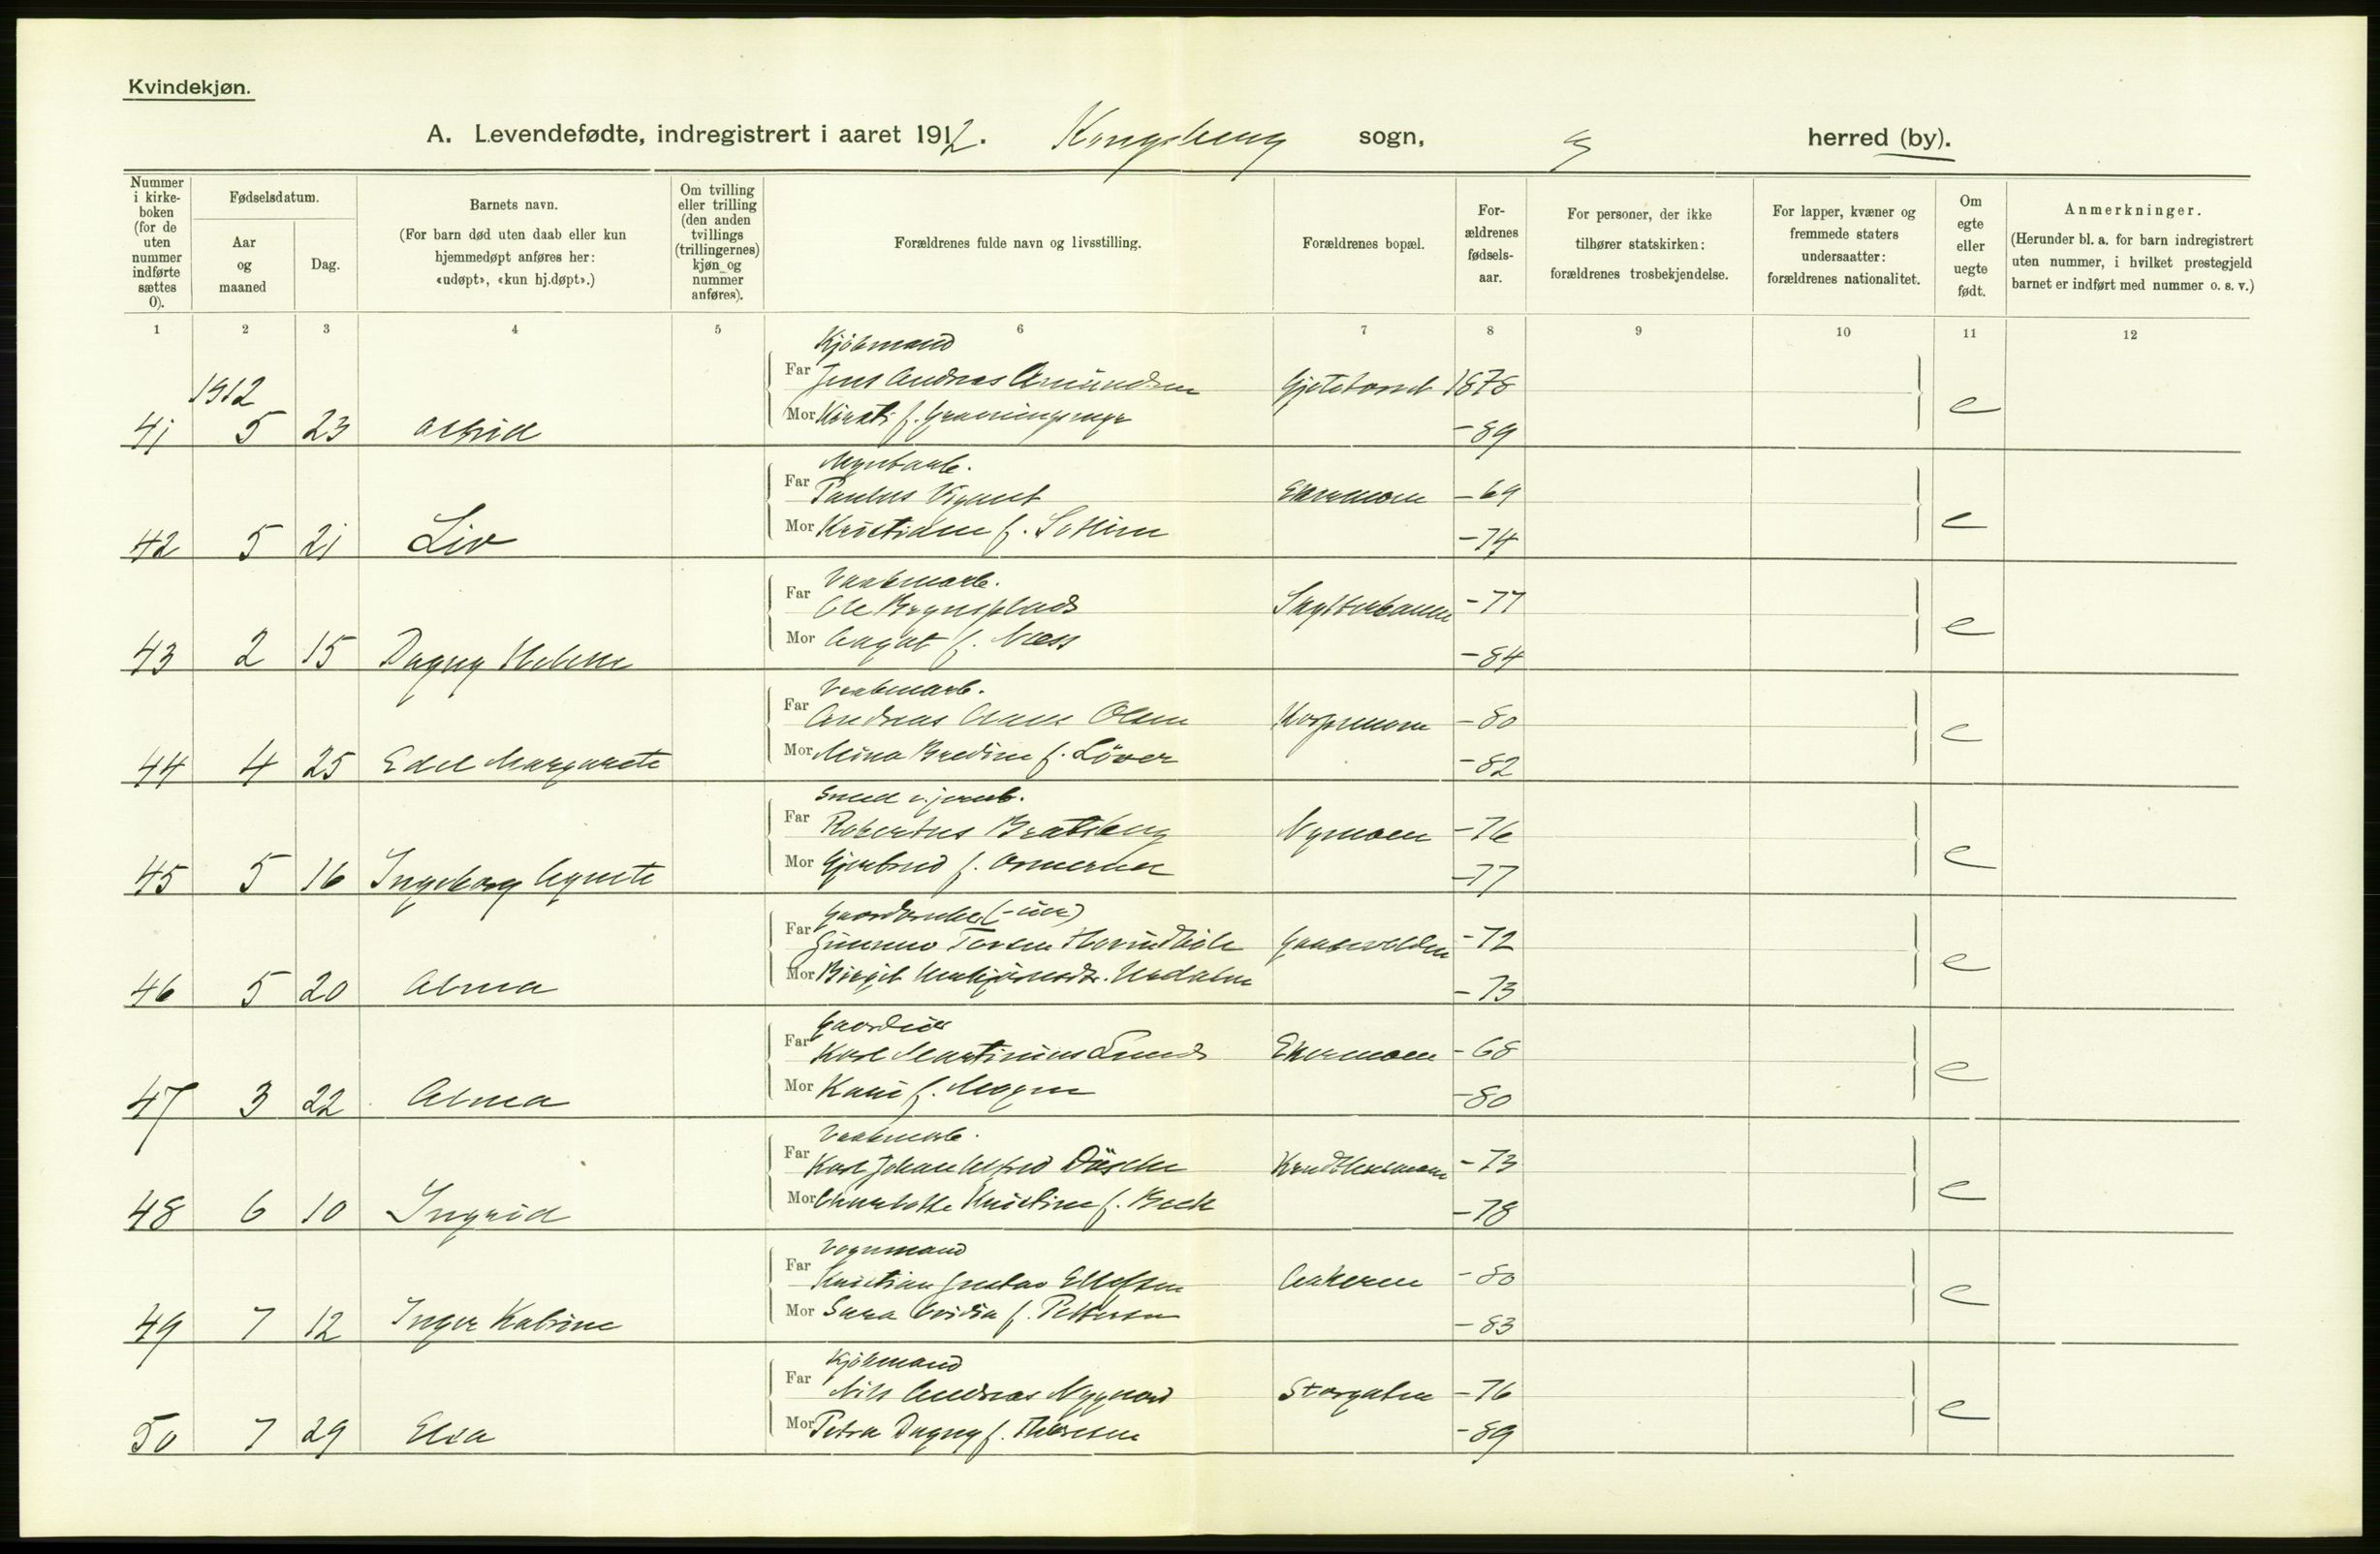 Kvindekjøn.
A. Levendefødte, indregistrert i aaret 1912. Kongsberg sogn, herred (by).
Nummer i kirke-boken (for de uten nummer indførte sættes 0).
Fødselsdatum.
Aar og maaned
Dag.
Barnets navn.
(For barn død uten daab eller kun hjemmedøpt anføres her: «udøpt», «kun hj.døpt».)
Om tvilling eller trilling (den anden tvillings (trillingernes) kjøn og nummer anføres).
Forældrenes fulde navn og livsstilling.
Forældrenes bopæl.
For-ældrenes fødsels-aar.
For personer, der ikke tilhører statskirken: forældrenes trosbekjendelse.
For lapper, kvæner og fremmede staters undersaatter: forældrenes nationalitet.
Om egte eller uegte født.
Anmerkninger.
(Herunder bl. a. for barn indregistrert uten nummer, i hvilket prestegjeld barnet er indført med nummer o. s. v.)
1 2 3 4 5 6 7 8 9 10 11 12
Kjøbmand
1912 Far Jens Andreas Amundsen 1878
41 5 23 Astrid Mor Kirsti f. -89 e
Far Paulus -69
42 5 21 Liv Mor Kristiane f. -74 e
Vaabenarb.
Far Ole Brynsplads -77
43 2 15 Dagny Helene Mor Aagot f. Næss -84 e
Vaabenarb.
Far Andreas Olsen -80
44 4 25 Edel Margarete Mor Mina Bredine f. Löver -82 e
Smed v. jernb.
Far Robertus Bratsberg Nymoen -76
45 5 16 Ingeborg Agnete Mor Gjertrud f. -77 e
Far Gunnuv -72
46 5 20 Alma Mor Birgit -73 e
Far Karl Martinius Lund Ekermoen -68
47 3 22 Alma Mor Kari f. Mogen -80 e
Vaabenarb.
Far Karl Johan Alfred -73
48 6 10 Ingrid Mor Charlotte Kristine f. Beck -78 e
Vognmand
Far Kristian Gustav Ellefsen -80
49 7 12 Inger Katrine Mor Sara Ovidia f. Pettersen -83 e
Kjøbmand
Far Nils Andreas Nygaard Storgaten -76
50 7 29 Elsa Mor Petra Dagny f. Thoresen -89 e